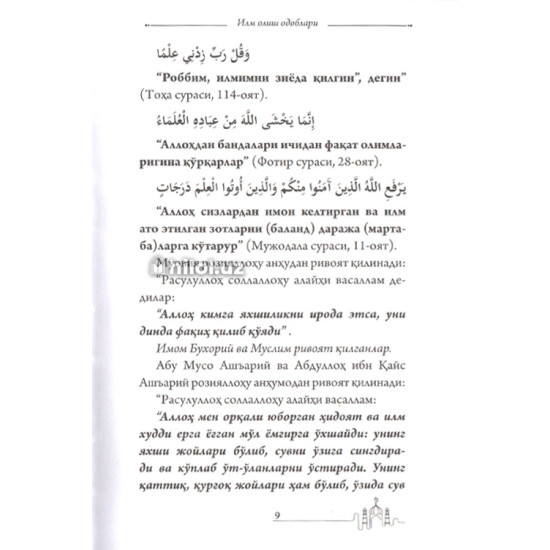 Илм олиш одоблари
وَقُلْ رَبِّ زِدْنِي عِلْمًا
“Роббим, илмимни зиёда қилгин”, дегин”
(Тоҳа сураси, 114-оят).
إِنَّمَا يَخْشَى اللَّهَ مِنْ عِبَادِهِ الْعُلَمَاءُ
“Аллоҳдан бандалари ичидан фақат олимла-
ригина қўрқарлар” (Фотир сураси, 28-оят).
يَرْفَعِ اللَّهُ الَّذِينَ آمَنُوا مِنْكُمْ وَالَّذِينَ أُوتُوا الْعِلْمَ دَرَجَاتٍ
“Аллоҳ сизлардан имон келтирган ва илм
ато этилган зотларни (баланд) даража (марта-
ба)ларга кўтарур” (Мужодала сураси, 11-оят).
розияллоҳу анҳудан ривоят қилинади:
hilol.uz
“Расулуллоҳ соллаллоҳу алайҳи васаллам де-
дилар:
“Аллоҳ кимга яхшиликни ирода этса, уни
динда фақиҳ қилиб қўяди” .
Имом Бухорий ва Муслим ривоят қилганлар.
Абу Мусо Ашъарий ва Абдуллоҳ ибн Қайс
Ашъарий розияллоҳу анҳумодан ривоят қилинади:
“Расулуллоҳ соллаллоҳу алайҳи васаллам:
“Аллоҳ мен орқали юборган ҳидоят ва илм
худди ерга ёғган мўл ёмғирга ўхшайди: унинг
яхши жойлари бўлиб, сувни ўзига сингдира-
ди ва кўплаб ўт-ўланларни ўстиради. Унинг
қаттиқ, қурғоқ жойлари ҳам бўлиб, ўзида сув
9